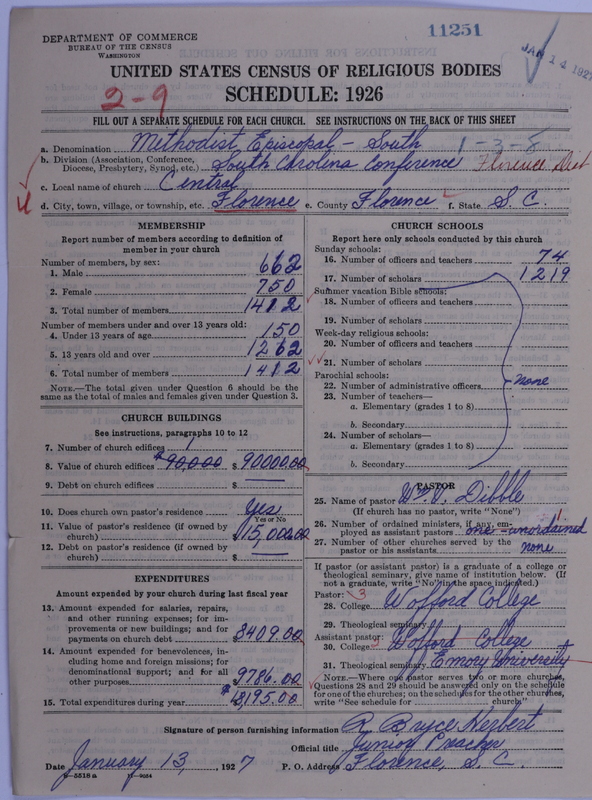 DEPARTMENT OF COMMERCE
BUREAU OF THE CENSUS
WASHINGTON
11251
JAN 14 1927
UNITED STATES CENSUS OF RELIGIOUS BODIES
SCHEDULE: 1926
2-9
FILL OUT A SEPARATE SCHEDULE FOR EACH CHURCH. SEE INSTRUCTIONS ON THE BACK OF THIS SHEET
a. Denomination Methodist Episcopal - South 1-3-8
b. Division (Association, Conference, Diocese, Presbytery, Synod, etc.) South Carolina Conference Florence Dist
c. Local name of church Central
d. City, town, village, or township, etc. Florence e. County Florence f. State S. C.
MEMBERSHIP
Report number of members according to definition of
member in your church
Number of members, by sex:
1. Male 662
2. Female 750
3. Total number of members 1412
Number of members under and over 13 years old:
4. Under 13 years of age 150
5. 13 years old and over 1262
6. Total number of members 1412
NOTE.—The total given under Question 6 should be
same as the total of males and females given under Question 3.
CHURCH BUILDINGS
See instructions, paragraphs 10 to 12
7. Number of church edifices 1
8. Value of church edifices $90,000 $ 90000.00
9. Debt on church edifices $ ——
10. Does church own pastor's residence Yes
Yes or No
11. Value of pastor's residence (if owned by
church) $15,000.00
12. Debt on pastor's residence (if owned by
church) $ ——
EXPENDITURES
Amount expended by your church during last fiscal year
13. Amount expended for salaries, repairs,
and other running expenses; for im-
provements or new buildings; and for
payments on church debt $8409.00
14. Amount expended for benevolences, in-
cluding home and foreign missions; for
denominational support; and for all
other purposes 9786.00
15. Total expenditures during year $ 18195.00
CHURCH SCHOOLS
Report here only schools conducted by this church
Sunday schools:
16. Number of officers and teachers 74
17. Number of scholars 1219
Summer vacation Bible schools:
18. Number of officers and teachers
19. Number of scholars
Week-day religious schools:
20. Number of officers and teachers
21. Number of scholars
Parochial schools:
22. Number of administrative officers none
23. Number of teachers—
a. Elementary (grades 1 to 8)
b. Secondary
24. Number of scholars—
a. Elementary (grades 1 to 8)
b. Secondary
PASTOR
25. Name of pastor Wm. V. Dibble
(If church has no pastor, write "None")
26. Number of ordained ministers, if any, em-
ployed as assistant pastors one - unordained
27. Number of other churches served by the
pastor or his assistants none
If pastor (or assistant pastor) is a graduate of a college or
theological seminary, give name of institution below. (If
not a graduate, write "No" in the space indicated.)
Pastor: 3
28. College Wofford College
29. Theological seminary
Assistant pastor:
30. College Wofford College
31. Theological seminary Emory University
NOTE.—Where one pastor serves two or more churches,
Questions 28 and 29 should be answered only on the schedule
for one of the churches; on the schedules for the other churches,
write "See schedule for church"
Signature of person furnishing information R. Bryce Herbert
Official title Junior Preacher
Date January 13, 1927 P. O. Address Florence, S. C.
8-5518 a 11-9054